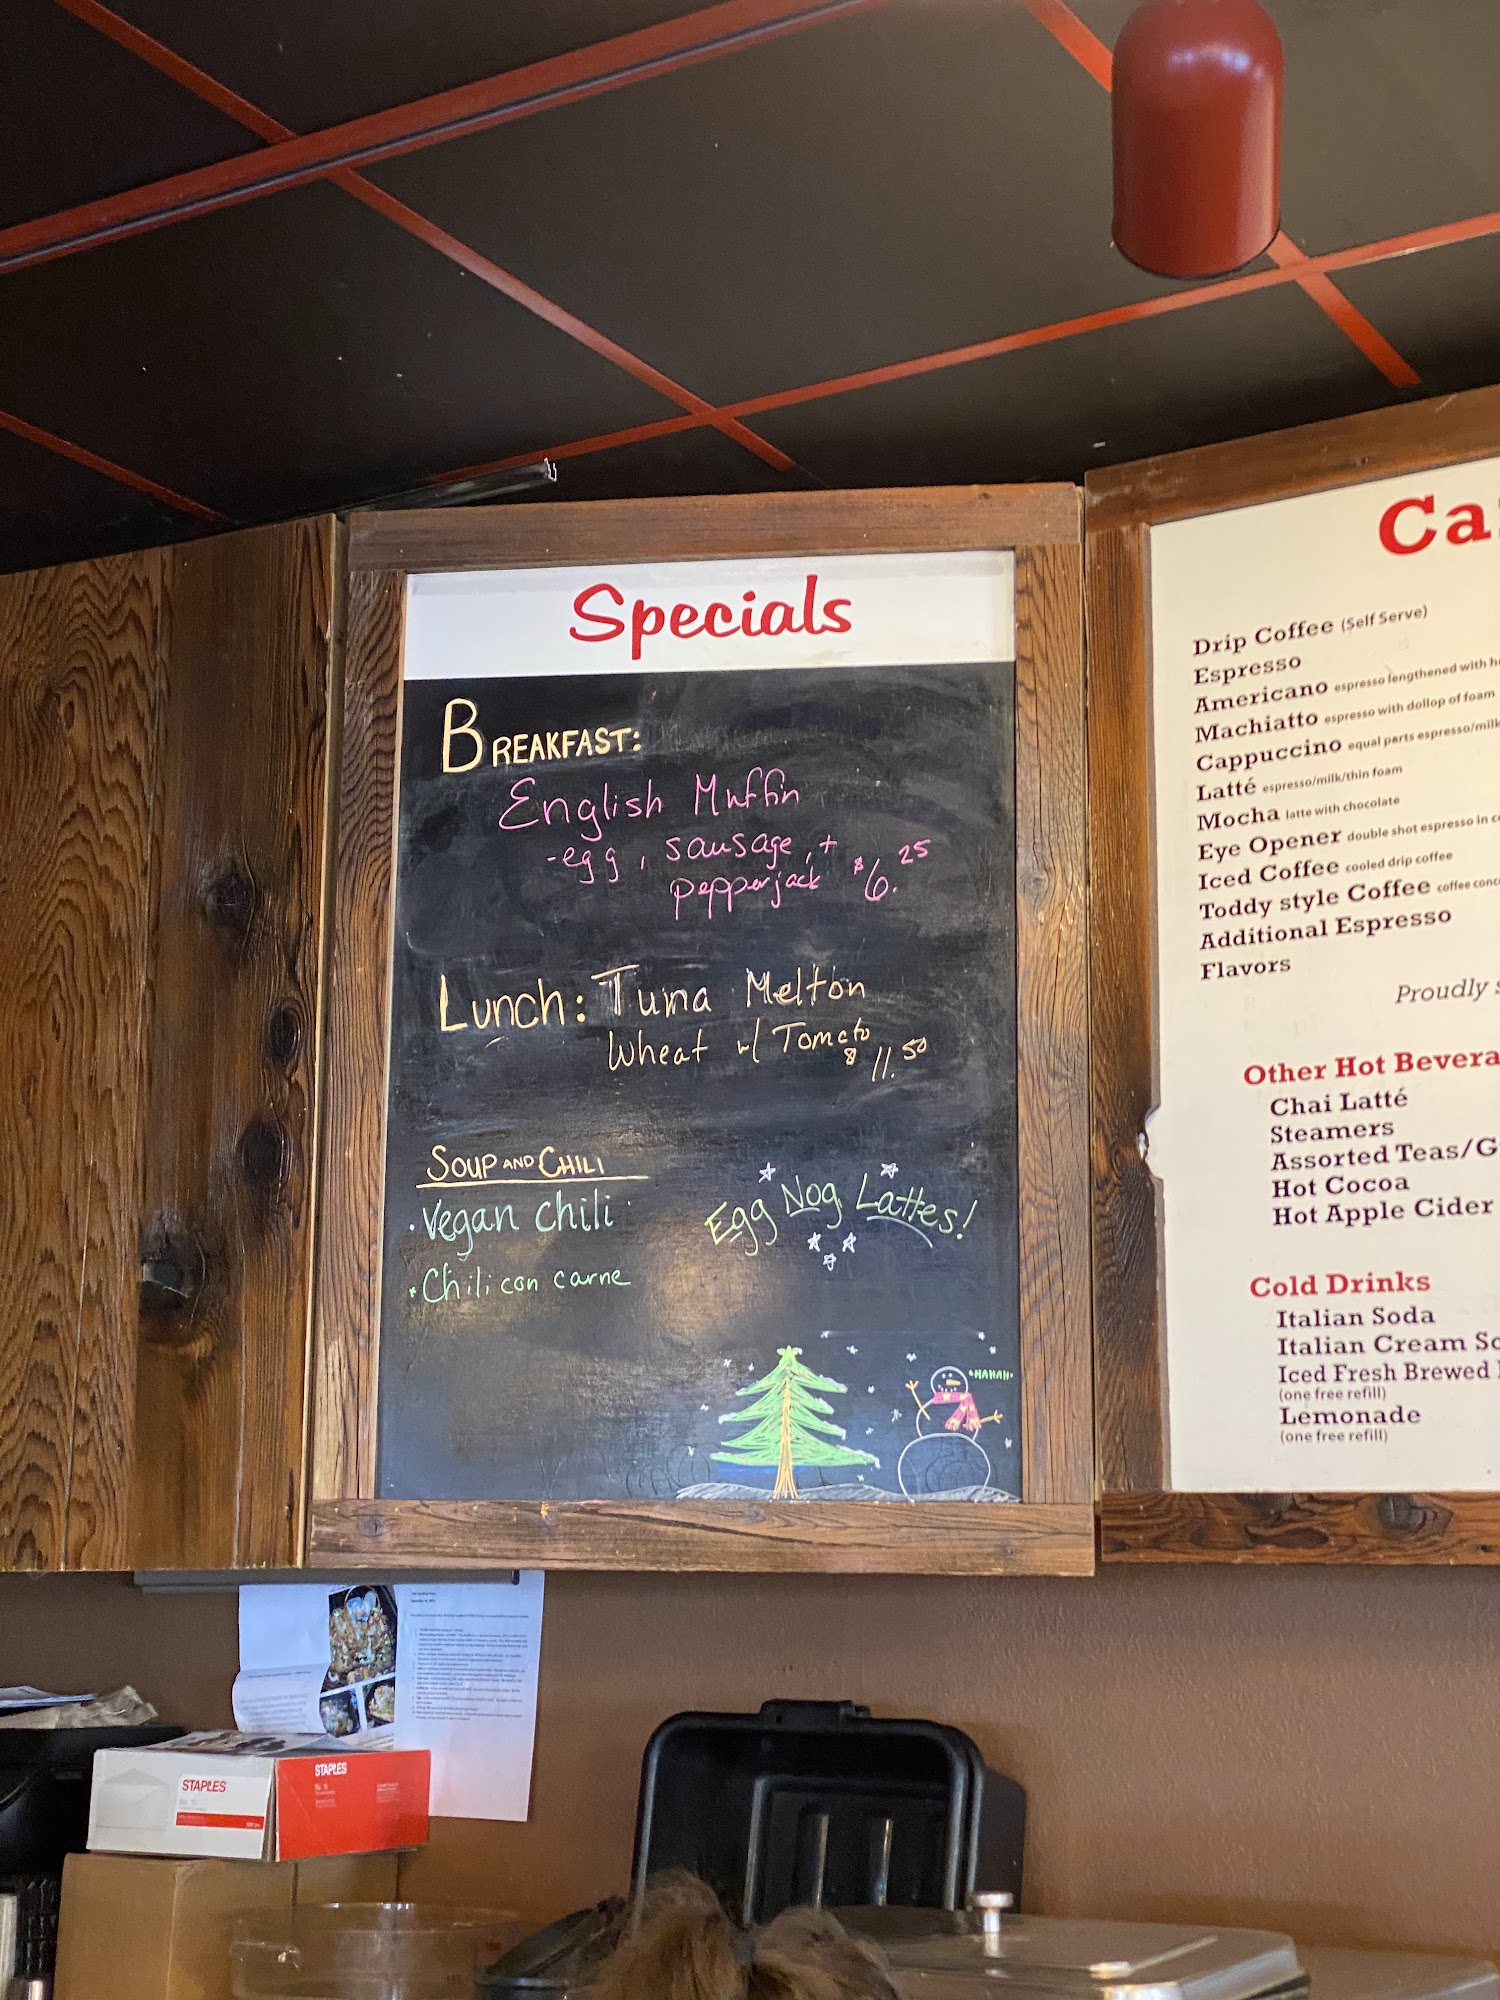 Specials
BREAKFAST:
English Muffin
-egg, sausage, +
pepperjack $6.25
Lunch: Tuna Melton
Wheat w/ Tomato
$11.50
SOUP AND CHILI
• Vegan Chili
• Chili con carne
Egg Nog Lattes!
•HAHAH•
Drip Coffee (Self Serve)
Espresso
Americano espresso lengthened with
Machiatto espresso with dollop of foam
Cappuccino equal parts espresso/milk
Latté espresso/milk/thin foam
Mocha latte with chocolate
Eye Opener double shot espresso in
Iced Coffee cooled drip coffee
Toddy style Coffee coffee
Additional Espresso
Flavors
Proudly
Other Hot Bevera
Chai Latté
Steamers
Assorted Teas/G
Hot Cocoa
Hot Apple Cider
Cold Drinks
Italian Soda
Italian Cream So
Iced Fresh Brewed
(one free refill)
Lemonade
(one free refill)
STAPLES
STAPLES